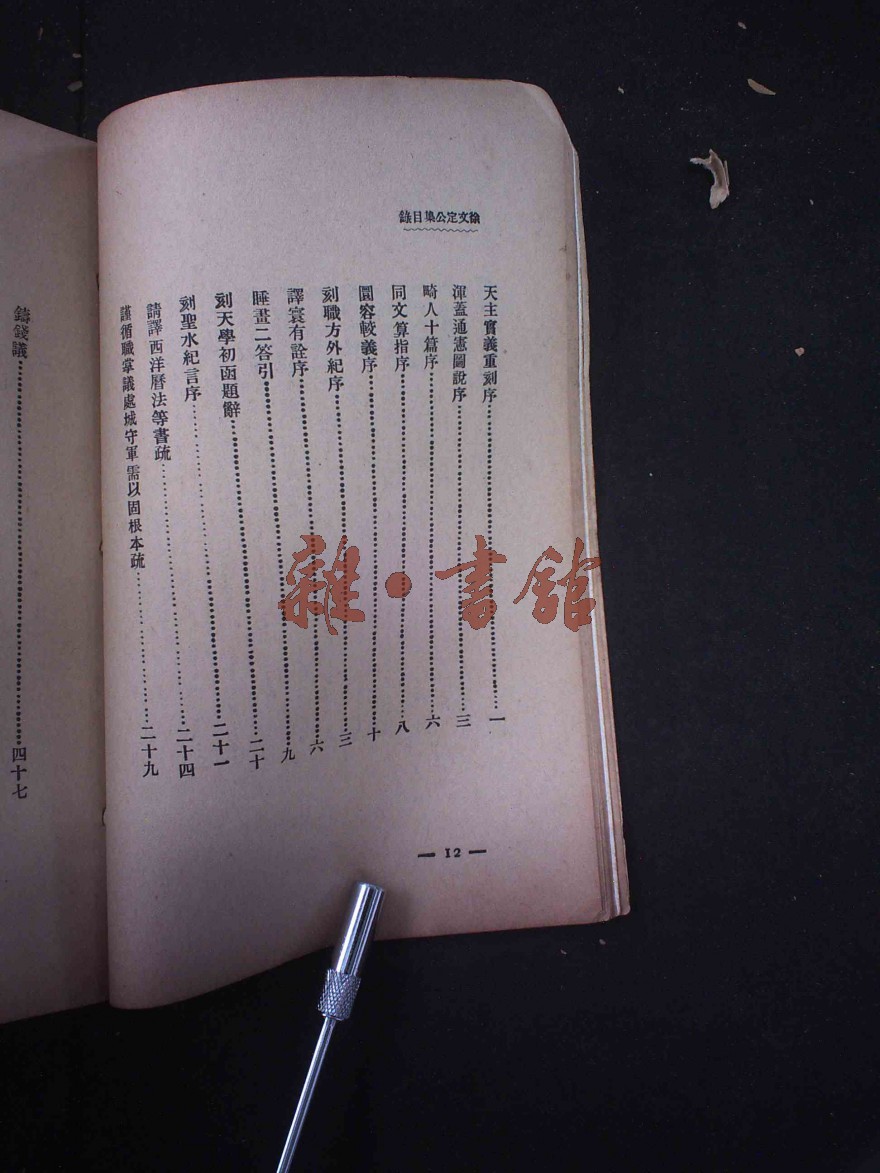 徐文定公集目錄
天主實義重刻序 一
渾蓋通憲圖說序 三
畸人十篇序 六
同文算指序 八
圜容較義序 十
刻職方外紀序 三
譯寰有詮序 六
睡畫二答引 九
刻天學初函題辭 二十
刻聖水紀言序 二十一
請譯西洋曆法等書疏 二十四
謹循職掌議處城守軍需以固根本疏 二十九
— 12 —
鑄錢議 四十七
雜·書館